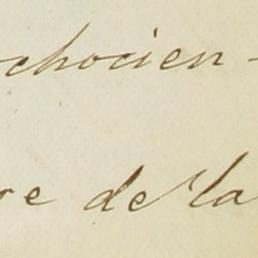 chocien-
re de la